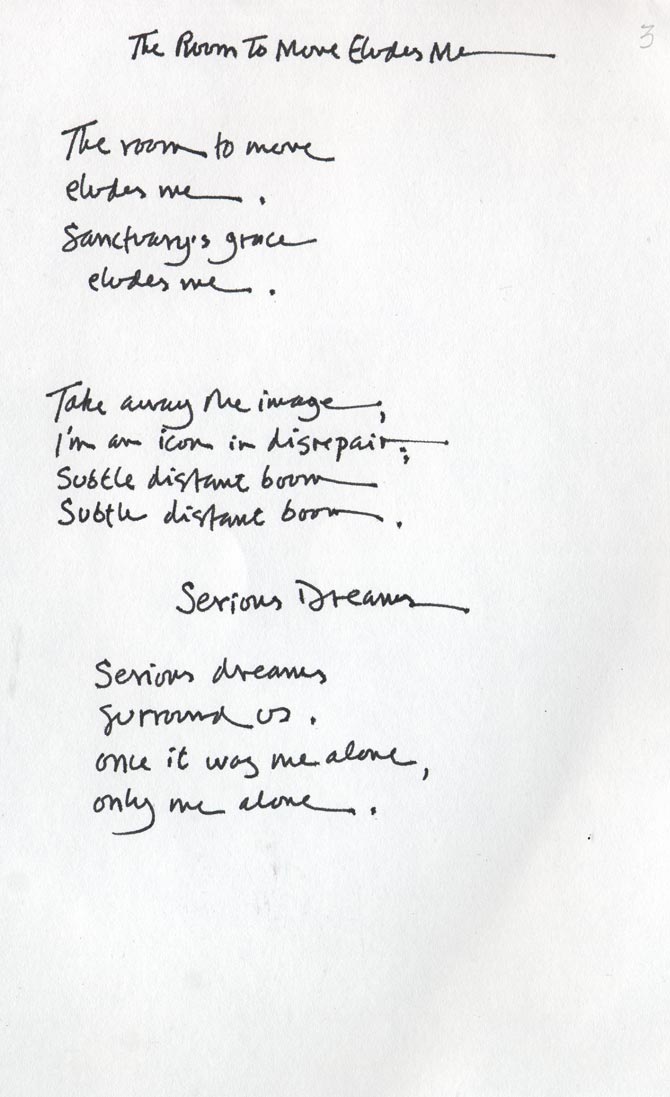 3
The Room To Move Eludes Me
The room to move
eludes me.
Sanctuary's grace
eludes me.
Take away the image,
I'm an icon in disrepair;
Subtle distant boom
Subtle distant boom.
Serious Dreams
Serious dreams
surround us.
once it was me alone,
only me alone.